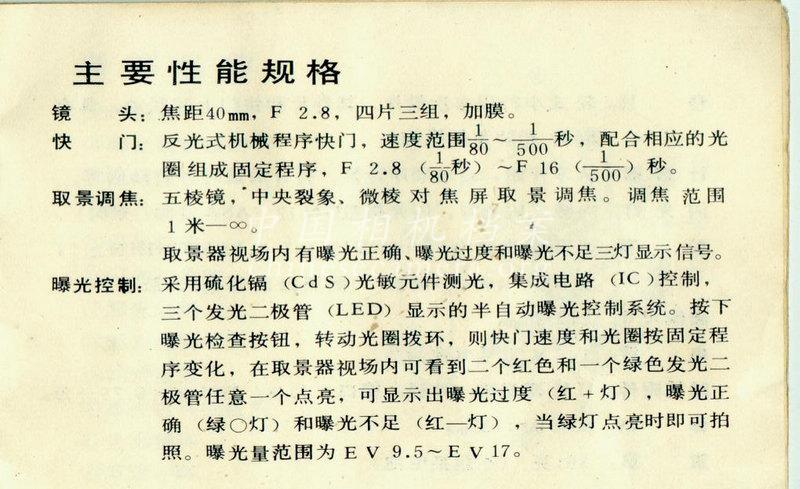 主要性能规格
镜 头：焦距40mm，F 2.8，四片三组，加膜。
快 门：反光式机械程序快门，速度范围1/80～1/500秒，配合相应的光
圈组成固定程序，F 2.8（1/80秒）～F 16（1/500）秒。
取景调焦：五棱镜，中央裂象、微棱对焦屏取景调焦。调焦范围
1米—∞。
取景器视场内有曝光正确、曝光过度和曝光不足三灯显示信号。
曝光控制：采用硫化镉（CdS）光敏元件测光，集成电路（IC）控制，
三个发光二极管（LED）显示的半自动曝光控制系统。按下
曝光检查按钮，转动光圈拨环，则快门速度和光圈按固定程
序变化，在取景器视场内可看到二个红色和一个绿色发光二
极管任意一个点亮，可显示出曝光过度（红＋灯），曝光正
确（绿○灯）和曝光不足（红—灯），当绿灯点亮时即可拍
照。曝光量范围为EV 9.5～EV 17。
中国相机档案